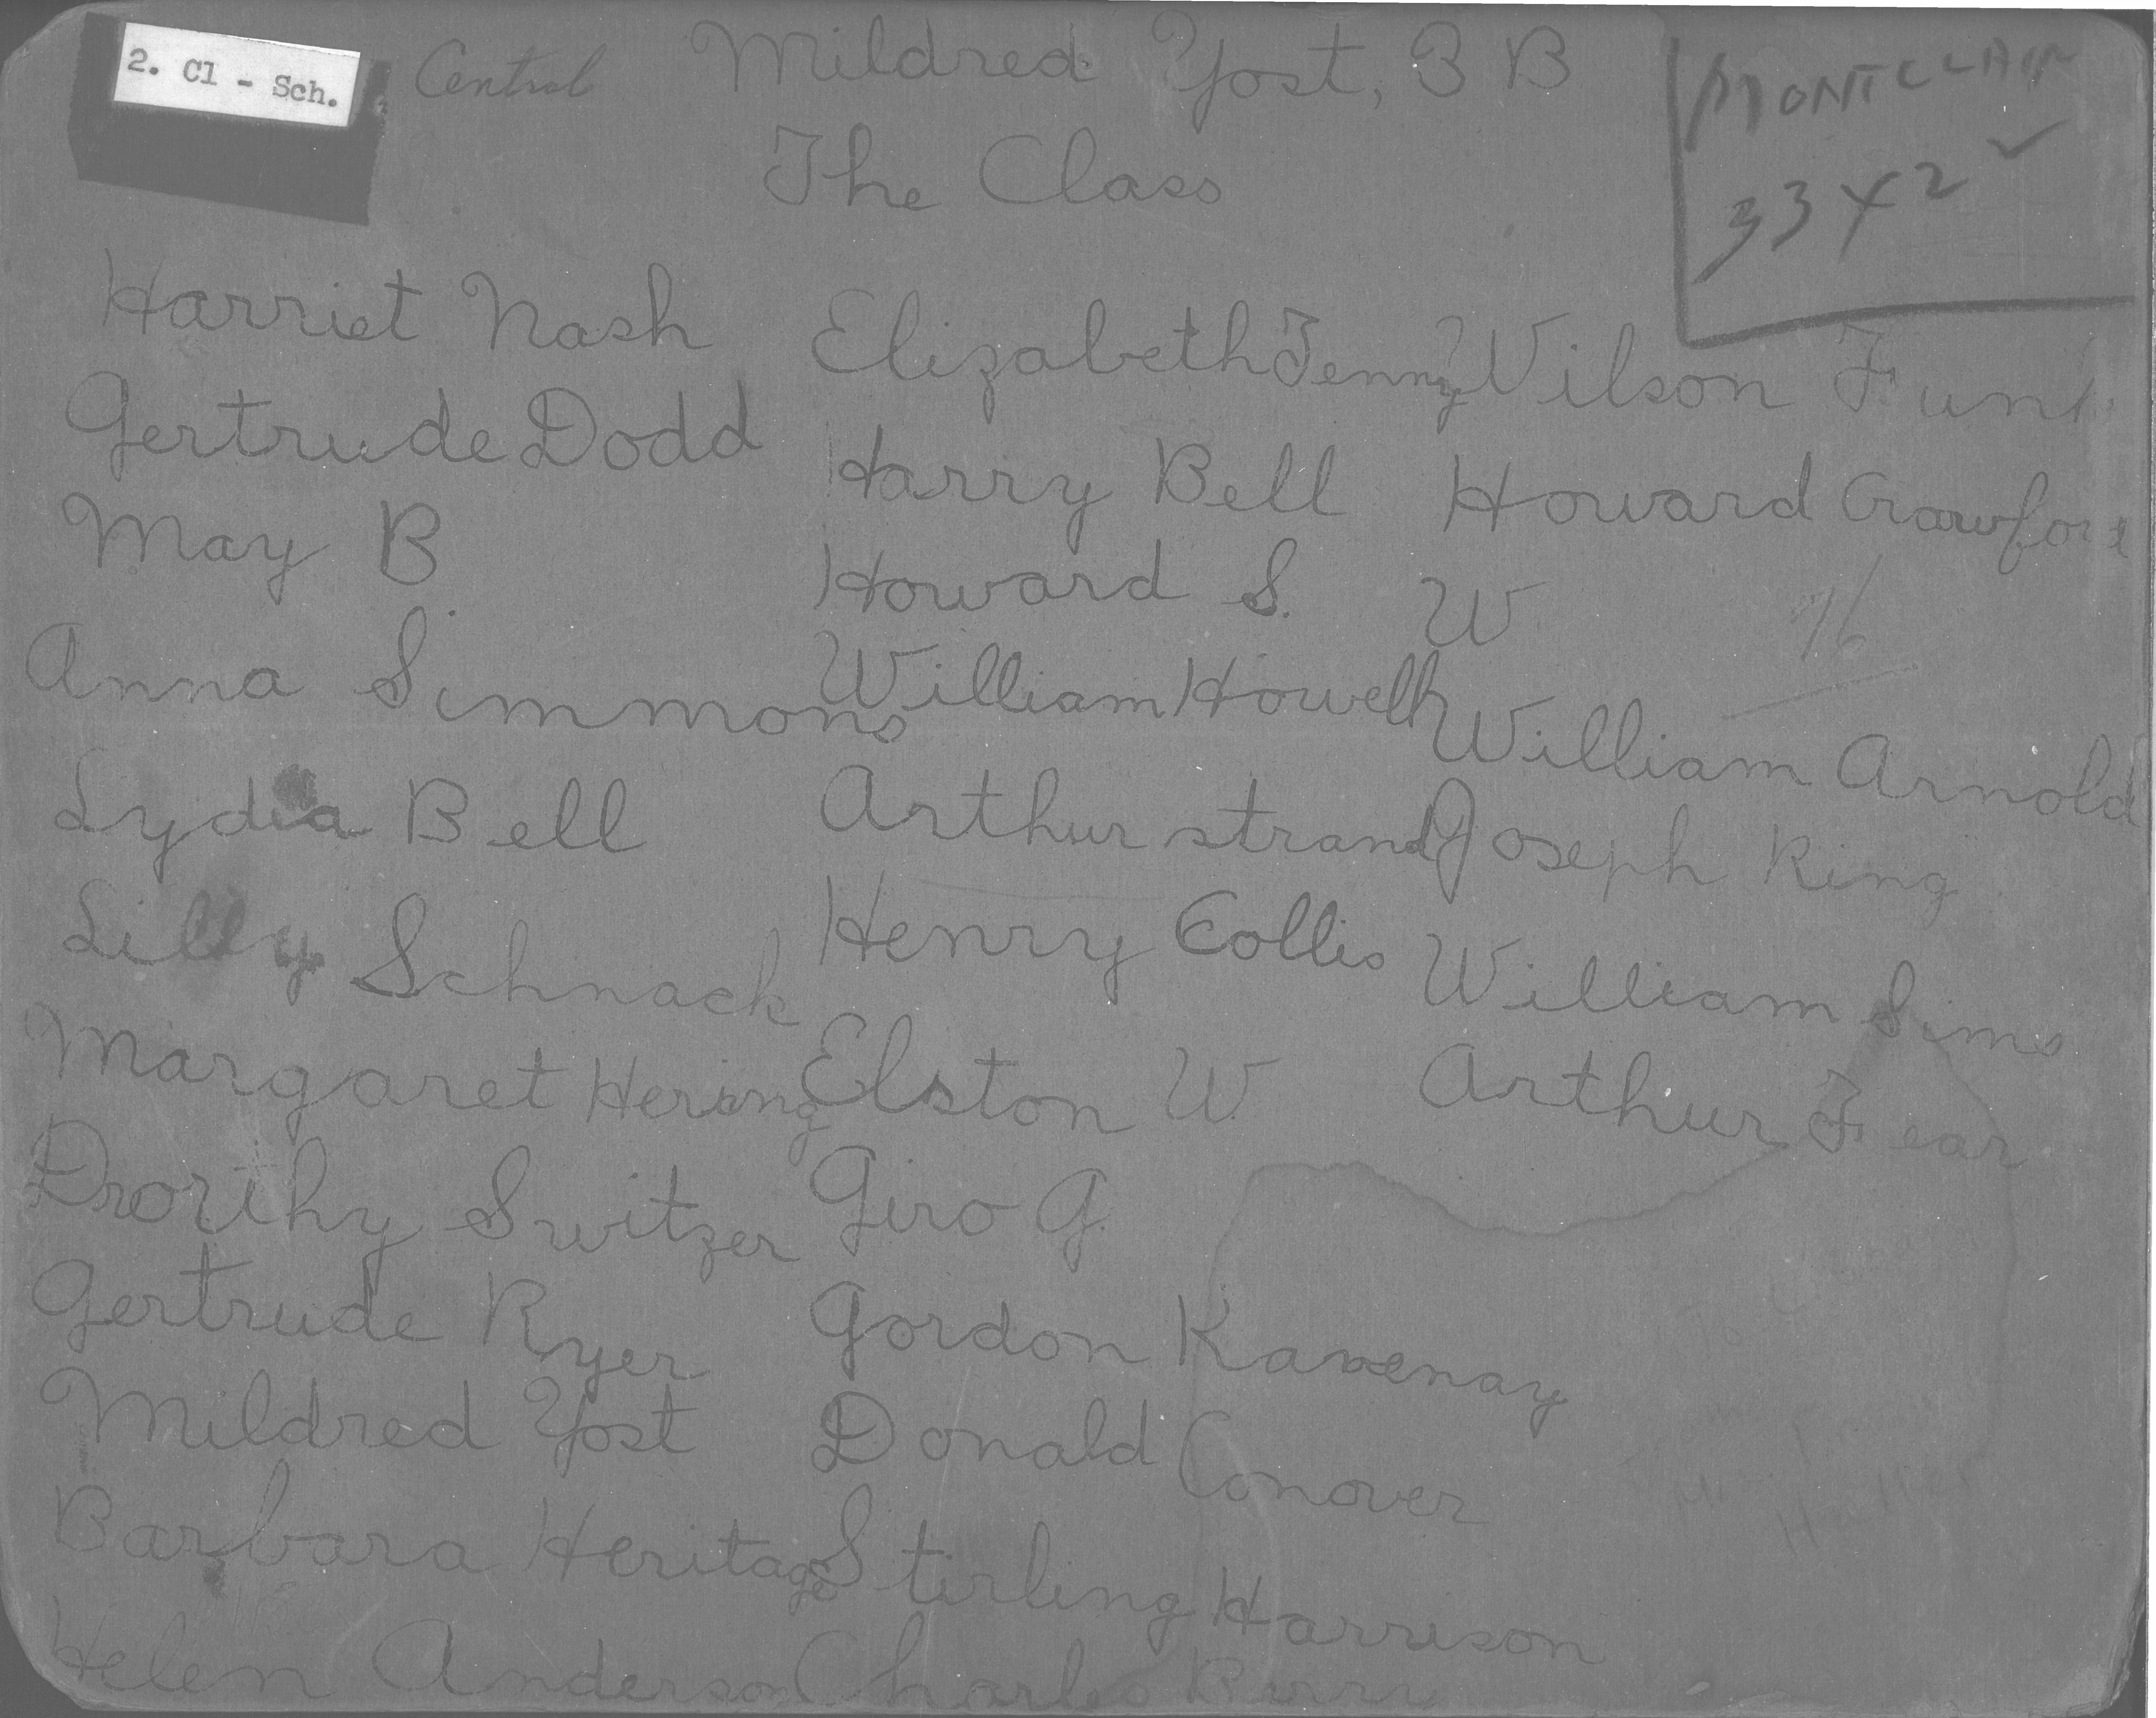 2. Cl - Sch.
Central
Mildred Yost, 3 B
MONTCLAIR
33 X 2 ✓
The Class
Harriet Nash
Gertrude Dodd
May B
Anna Simmons
Lydia Bell
Lilly Schnack
Margaret Hering
Drorthy Switzer
Gertrude Ryer
Mildred Yost
Barbara Heritage
Helen Anderson
Elizabeth Tenny
Harry Bell
Howard S.
William Howell
Arthur strand
Henry Collis
Elston W.
Giro G.
Gordon Kavenay
Donald Conover
Stirling Harrison
Charles Burr
Wilson Funk
Howard Crawford
W.
William Arnold
Joseph King
William Sims
Arthur Fear